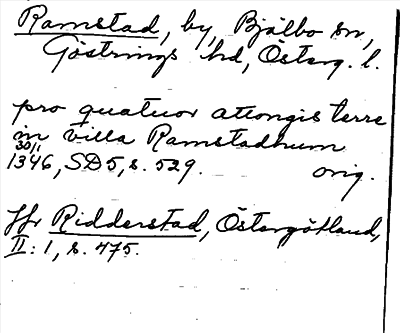 Ramstad, by, Bjälbo sn,
Göstrings hd, Österg. l.
pro quatuor attongis terre
in villa Ramstadhum
30/1
1346, SD5, s. 529. orig.
Jfr Ridderstad, Östergötland,
II: 1, s. 475.